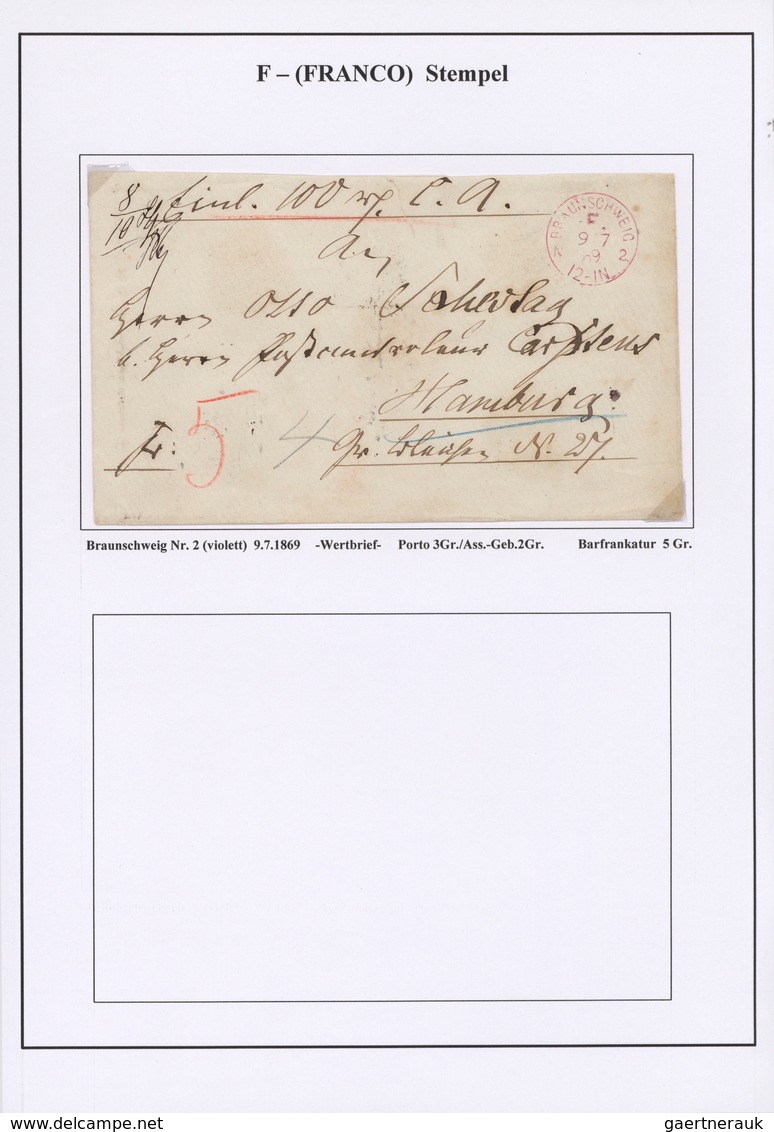 F – (FRANCO) Stempel
8/10
Einl. 100 rℓ. C. A.
BRAUNSCHWEIG 2
F.
9 7
69
12-1N
An
Herrn Otto
b. Herrn Postcontroleur Carstens
Hamburg.
fr: 5 4 Gr. Bleichen N. 27.
Braunschweig Nr. 2 (violett) 9.7.1869 -Wertbrief- Porto 3Gr./Ass.-Geb.2Gr. Barfrankatur 5 Gr.
gaertnerauk
delcampe.net